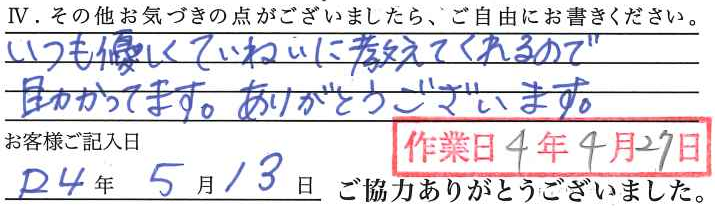 Ⅳ．その他お気づきの点がございましたら、ご自由にお書きください。
いつも優しくていねいに教えてくれるので
助かってます。ありがとうございます。
お客様ご記入日
作業日4年4月27日
R4年 5月13日 ご協力ありがとうございました。